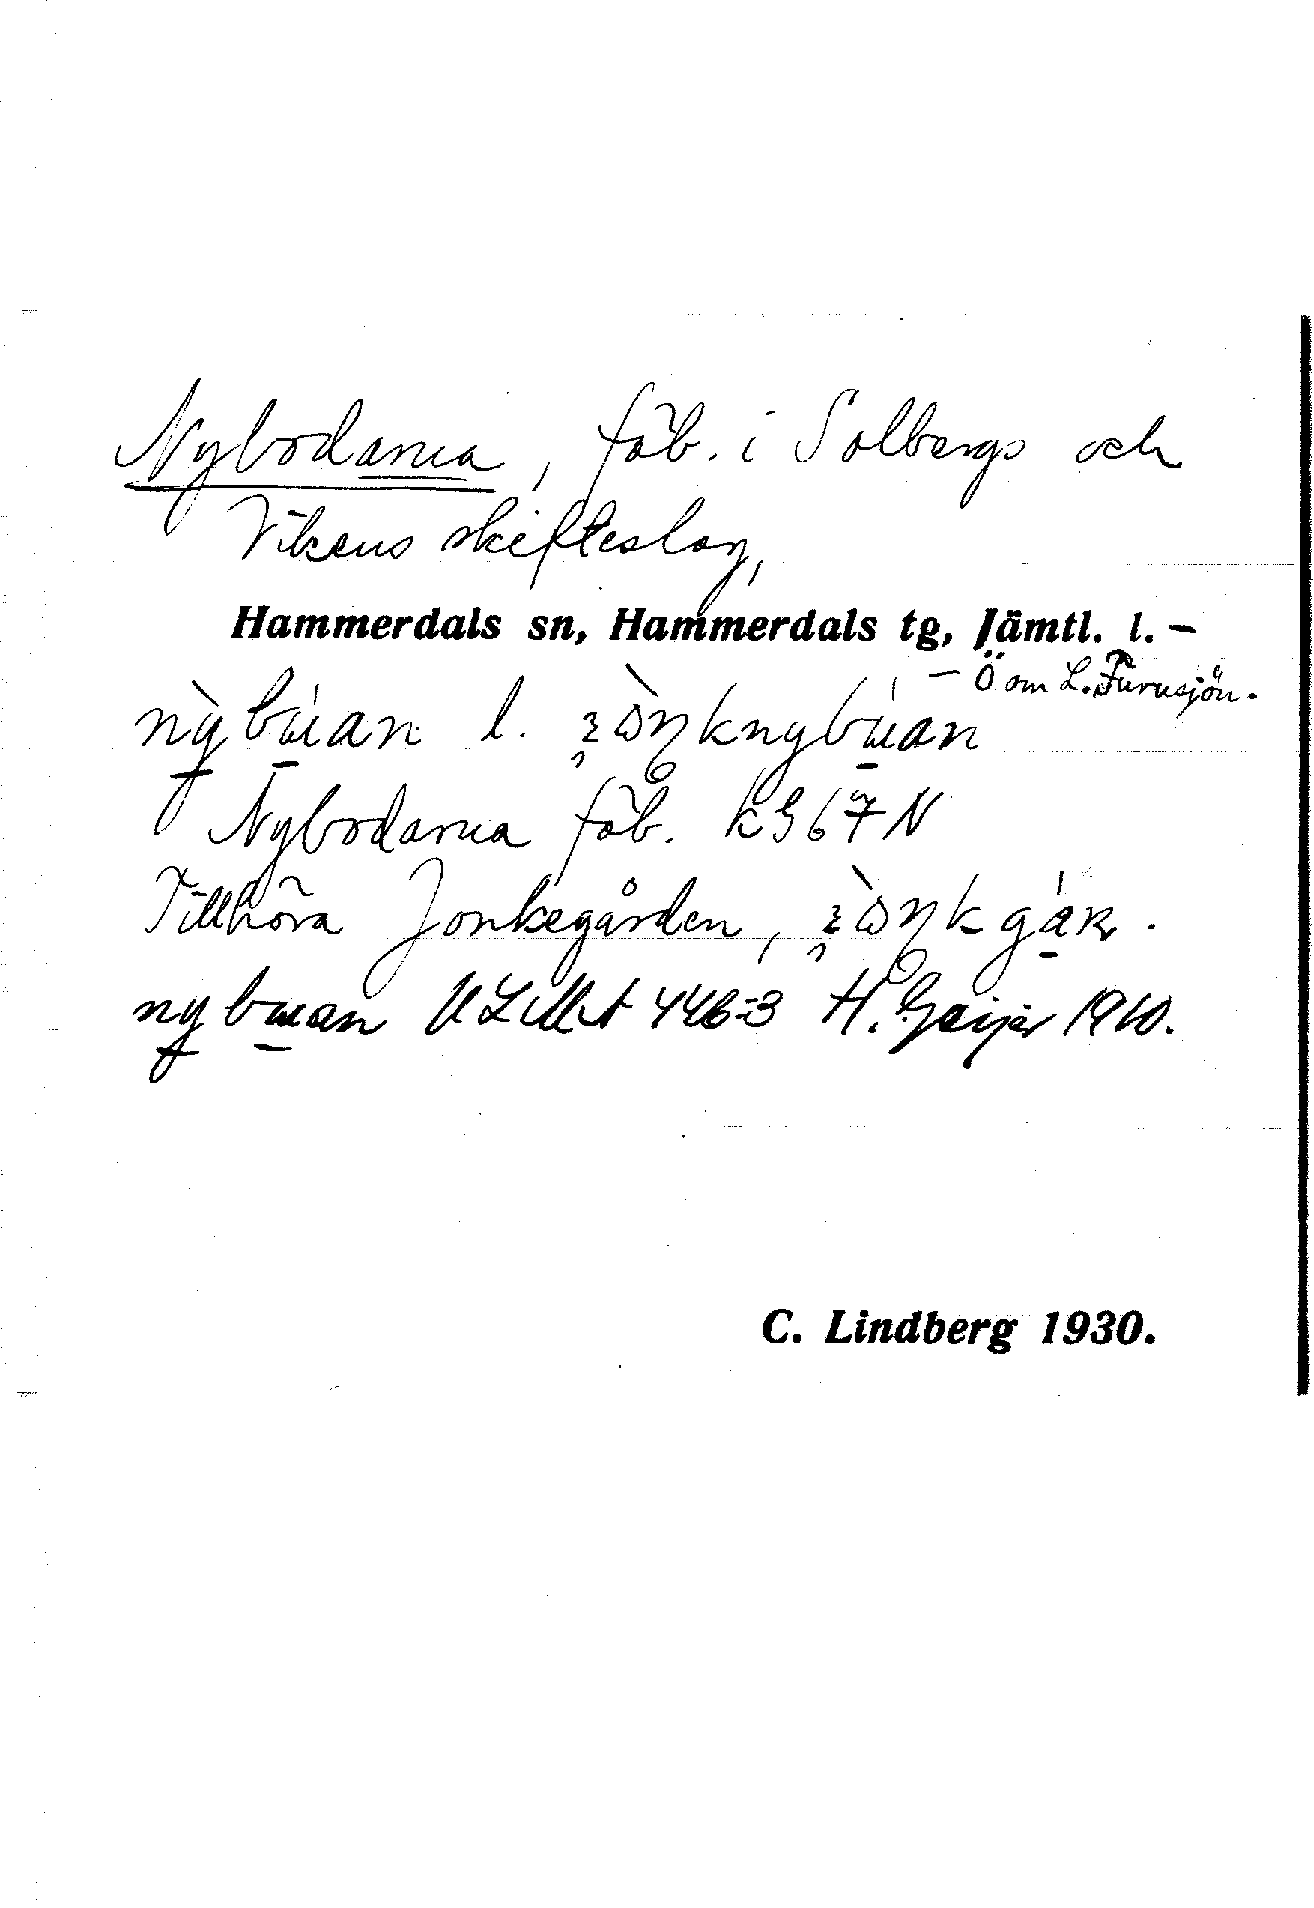 Nybodarna, fäb. i Solbergs och
Vikens skifteslag,
Hammerdals sn, Hammerdals tg, Jämtl. l. –
– Ö om L. Furusjön.
l.
Nybodarna fäb. k 367 N
Tillhöra Jonkegården,
446:3 H. Geijer 1910.
C. Lindberg 1930.